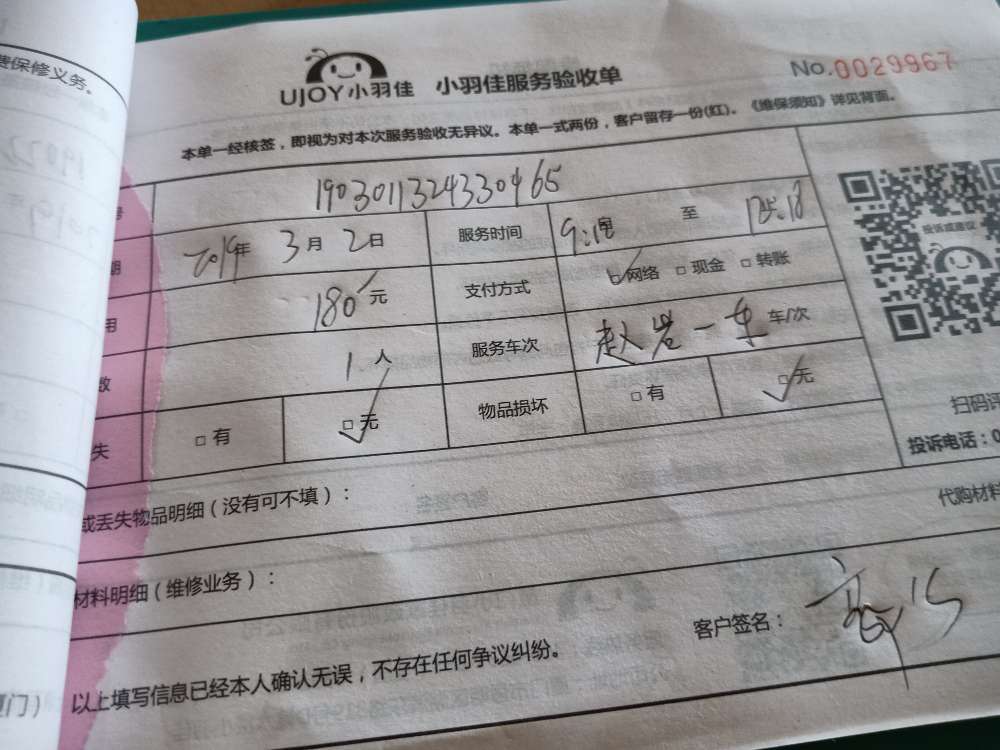 费保修义务。
UJOY小羽佳 小羽佳服务验收单 No.0029967
本单一经核签，即视为对本次服务验收无异议。本单一式两份，客户留存一份(红)。《维保须知》详见背面。
号 1903011324330465
期 2019年 3月 2日 服务时间 至
用 180元 支付方式 ☑网络 □现金 □转账
数 1人 服务车次 赵岩一车 车/次
失 □有 ☑无 物品损坏 □有 ☑无
投诉或建议
扫码评
投诉电话：0
或丢失物品明细（没有可不填）：
代购材料
材料明细（维修业务）：
客户签名：
以上填写信息已经本人确认无误，不存在任何争议纠纷。
门）